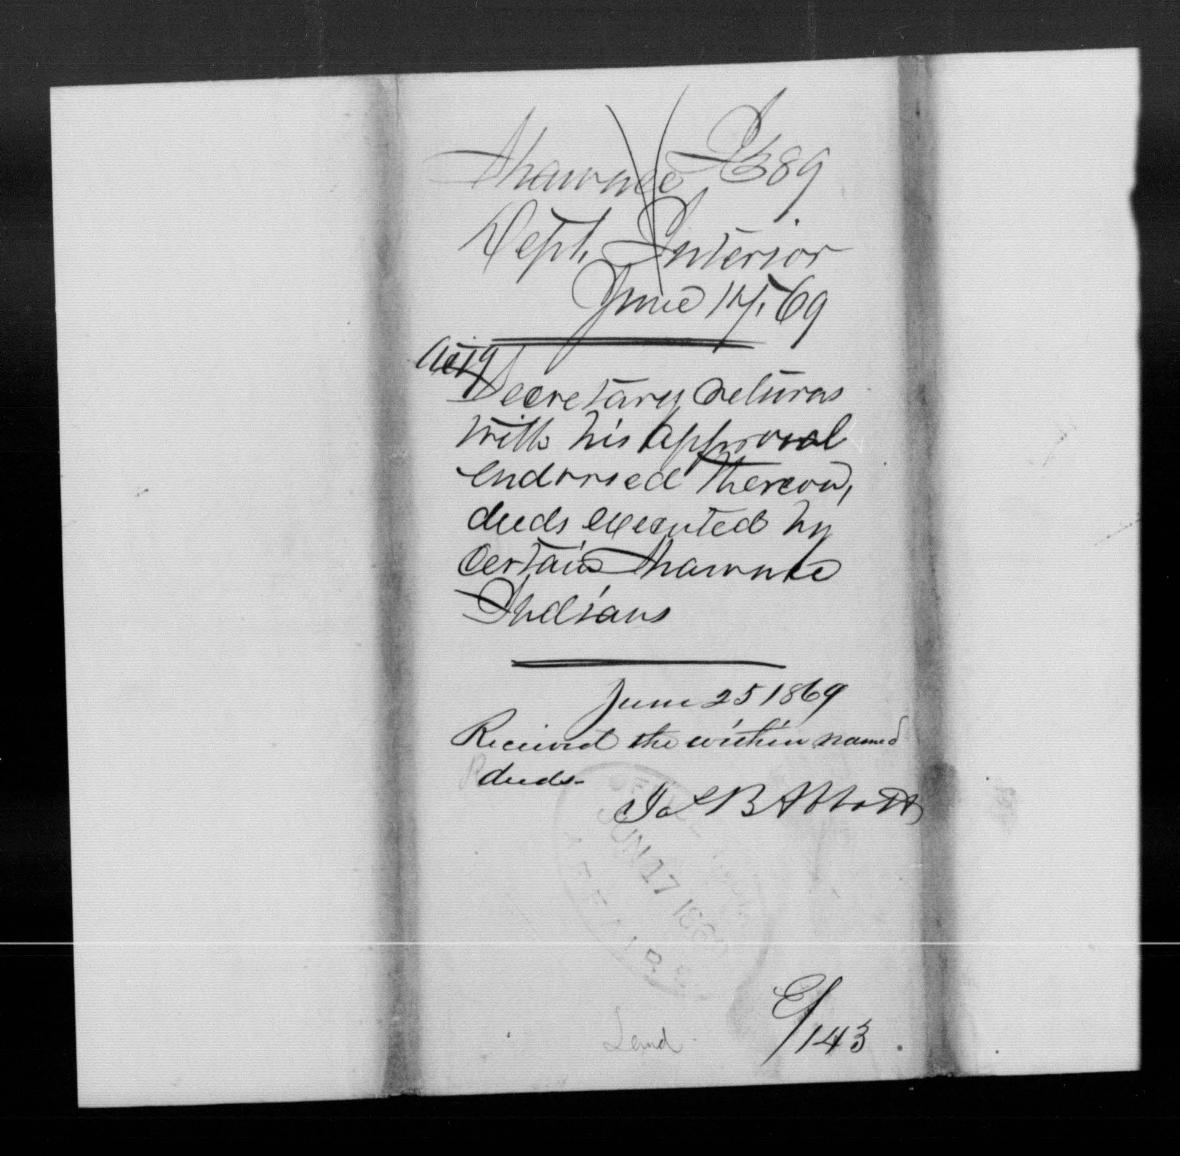 Shawnee I389
Dept. Interior
June 17, 69
Act'g
Secretary returns
with his approval
endorsed thereon,
deeds executed by
certain Shawnee
Indians
June 25 1869
Received the within named
deeds.
Jas B Abbott
OFFICE INDIAN
JUN 17 1869
AFFAIRS
E/143
Land